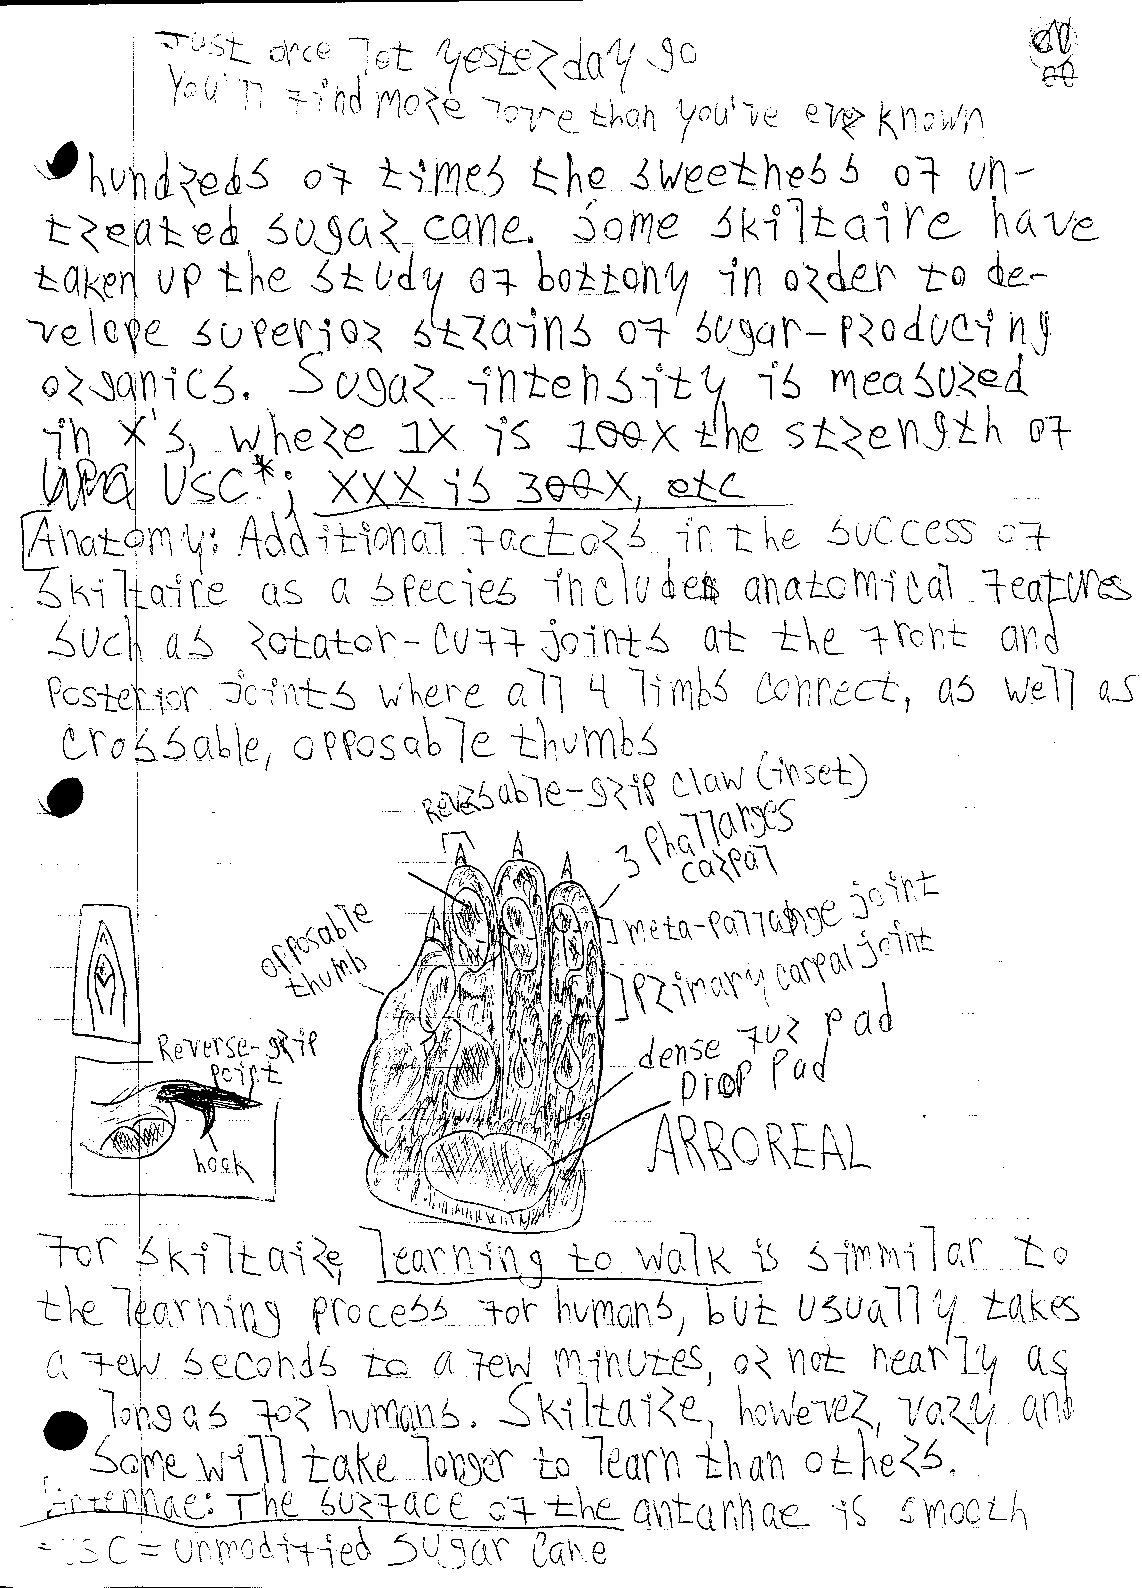 Just once let yesterday go
You'll find more love than you've ever known
hundreds of times the sweetness of un-
treated sugar cane. Some skiltaire have
taken up the study of bottony in order to de-
velope superior strains of sugar-producing
organics. Sugar intensity is measured
in X's, where 1X is 100X the strength of
USC*; XXX is 300X, etc
Anatomy: Additional factors in the success of
Skiltaire as a species include anatomical features
such as rotator-cuff joints at the front and
posterior joints where all 4 limbs connect, as well as
crossable, opposable thumbs
Reversable-grip claw (inset)
3 Phallanges
carpal
opposable
thumb
meta-pallange joint
Primary carpal joint
dense fur pad
Drop Pad
ARBOREAL
Reverse-grip
point
hook
For skiltaire, learning to walk is simmilar to
the learning process for humans, but usually takes
a few seconds to a few minutes, or not nearly as
long as for humans. Skiltaire, however, vary and
Some will take longer to learn than others.
Antennae: The surface of the antannae is smooth
*USC = Unmodified Sugar Cane